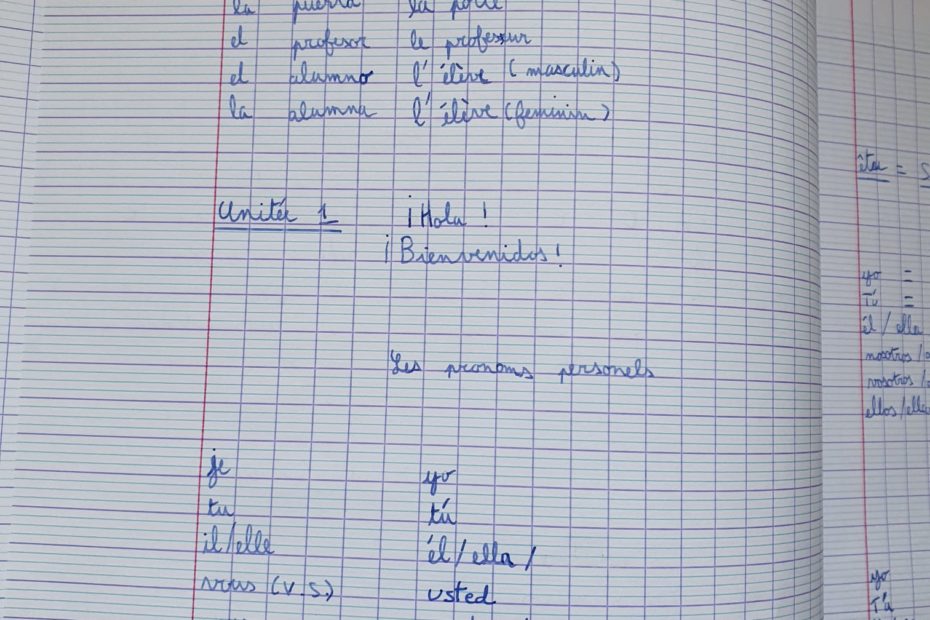 la puerta la porte
el profesor le professeur
el alumno l'élève (masculin)
la alumna l'élève (feminin)
Unité 1 ¡Hola !
¡Bienvenidos!
Les pronoms personels
je yo
tu tú
il/elle él/ella/
vous (V.S.) usted
être =
yo =
Tú =
él / ella
nosotros /
vosotros /
ellos/ella
yo
Tú